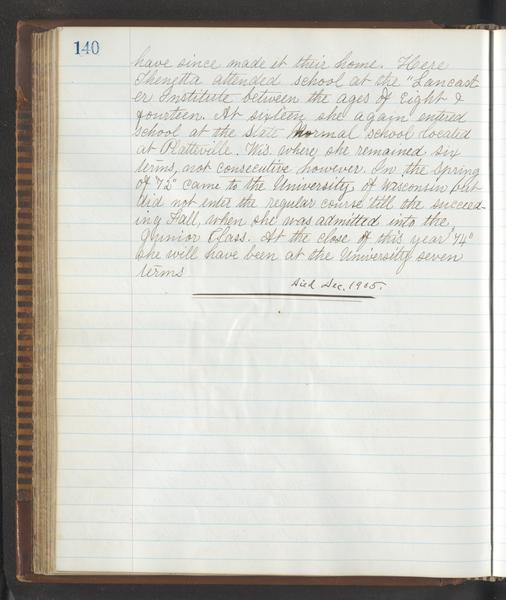 140
have since made it their home. Here
Thenetta attended school at the "Lancast
er Institute between the ages of Eight &
fourteen. At sixteen she again entered
school at the State Normal school located
at Platteville. Wis. where she remained six
terms, not consecutive however. In the Spring
of "72" came to the University of Wisconsin but
did not enter the regular course till the succeed-
ing Fall, when she was admitted into the
Junior Class. At the close of this year "74"
she will have been at the University seven
terms
Died Dec. 1905.